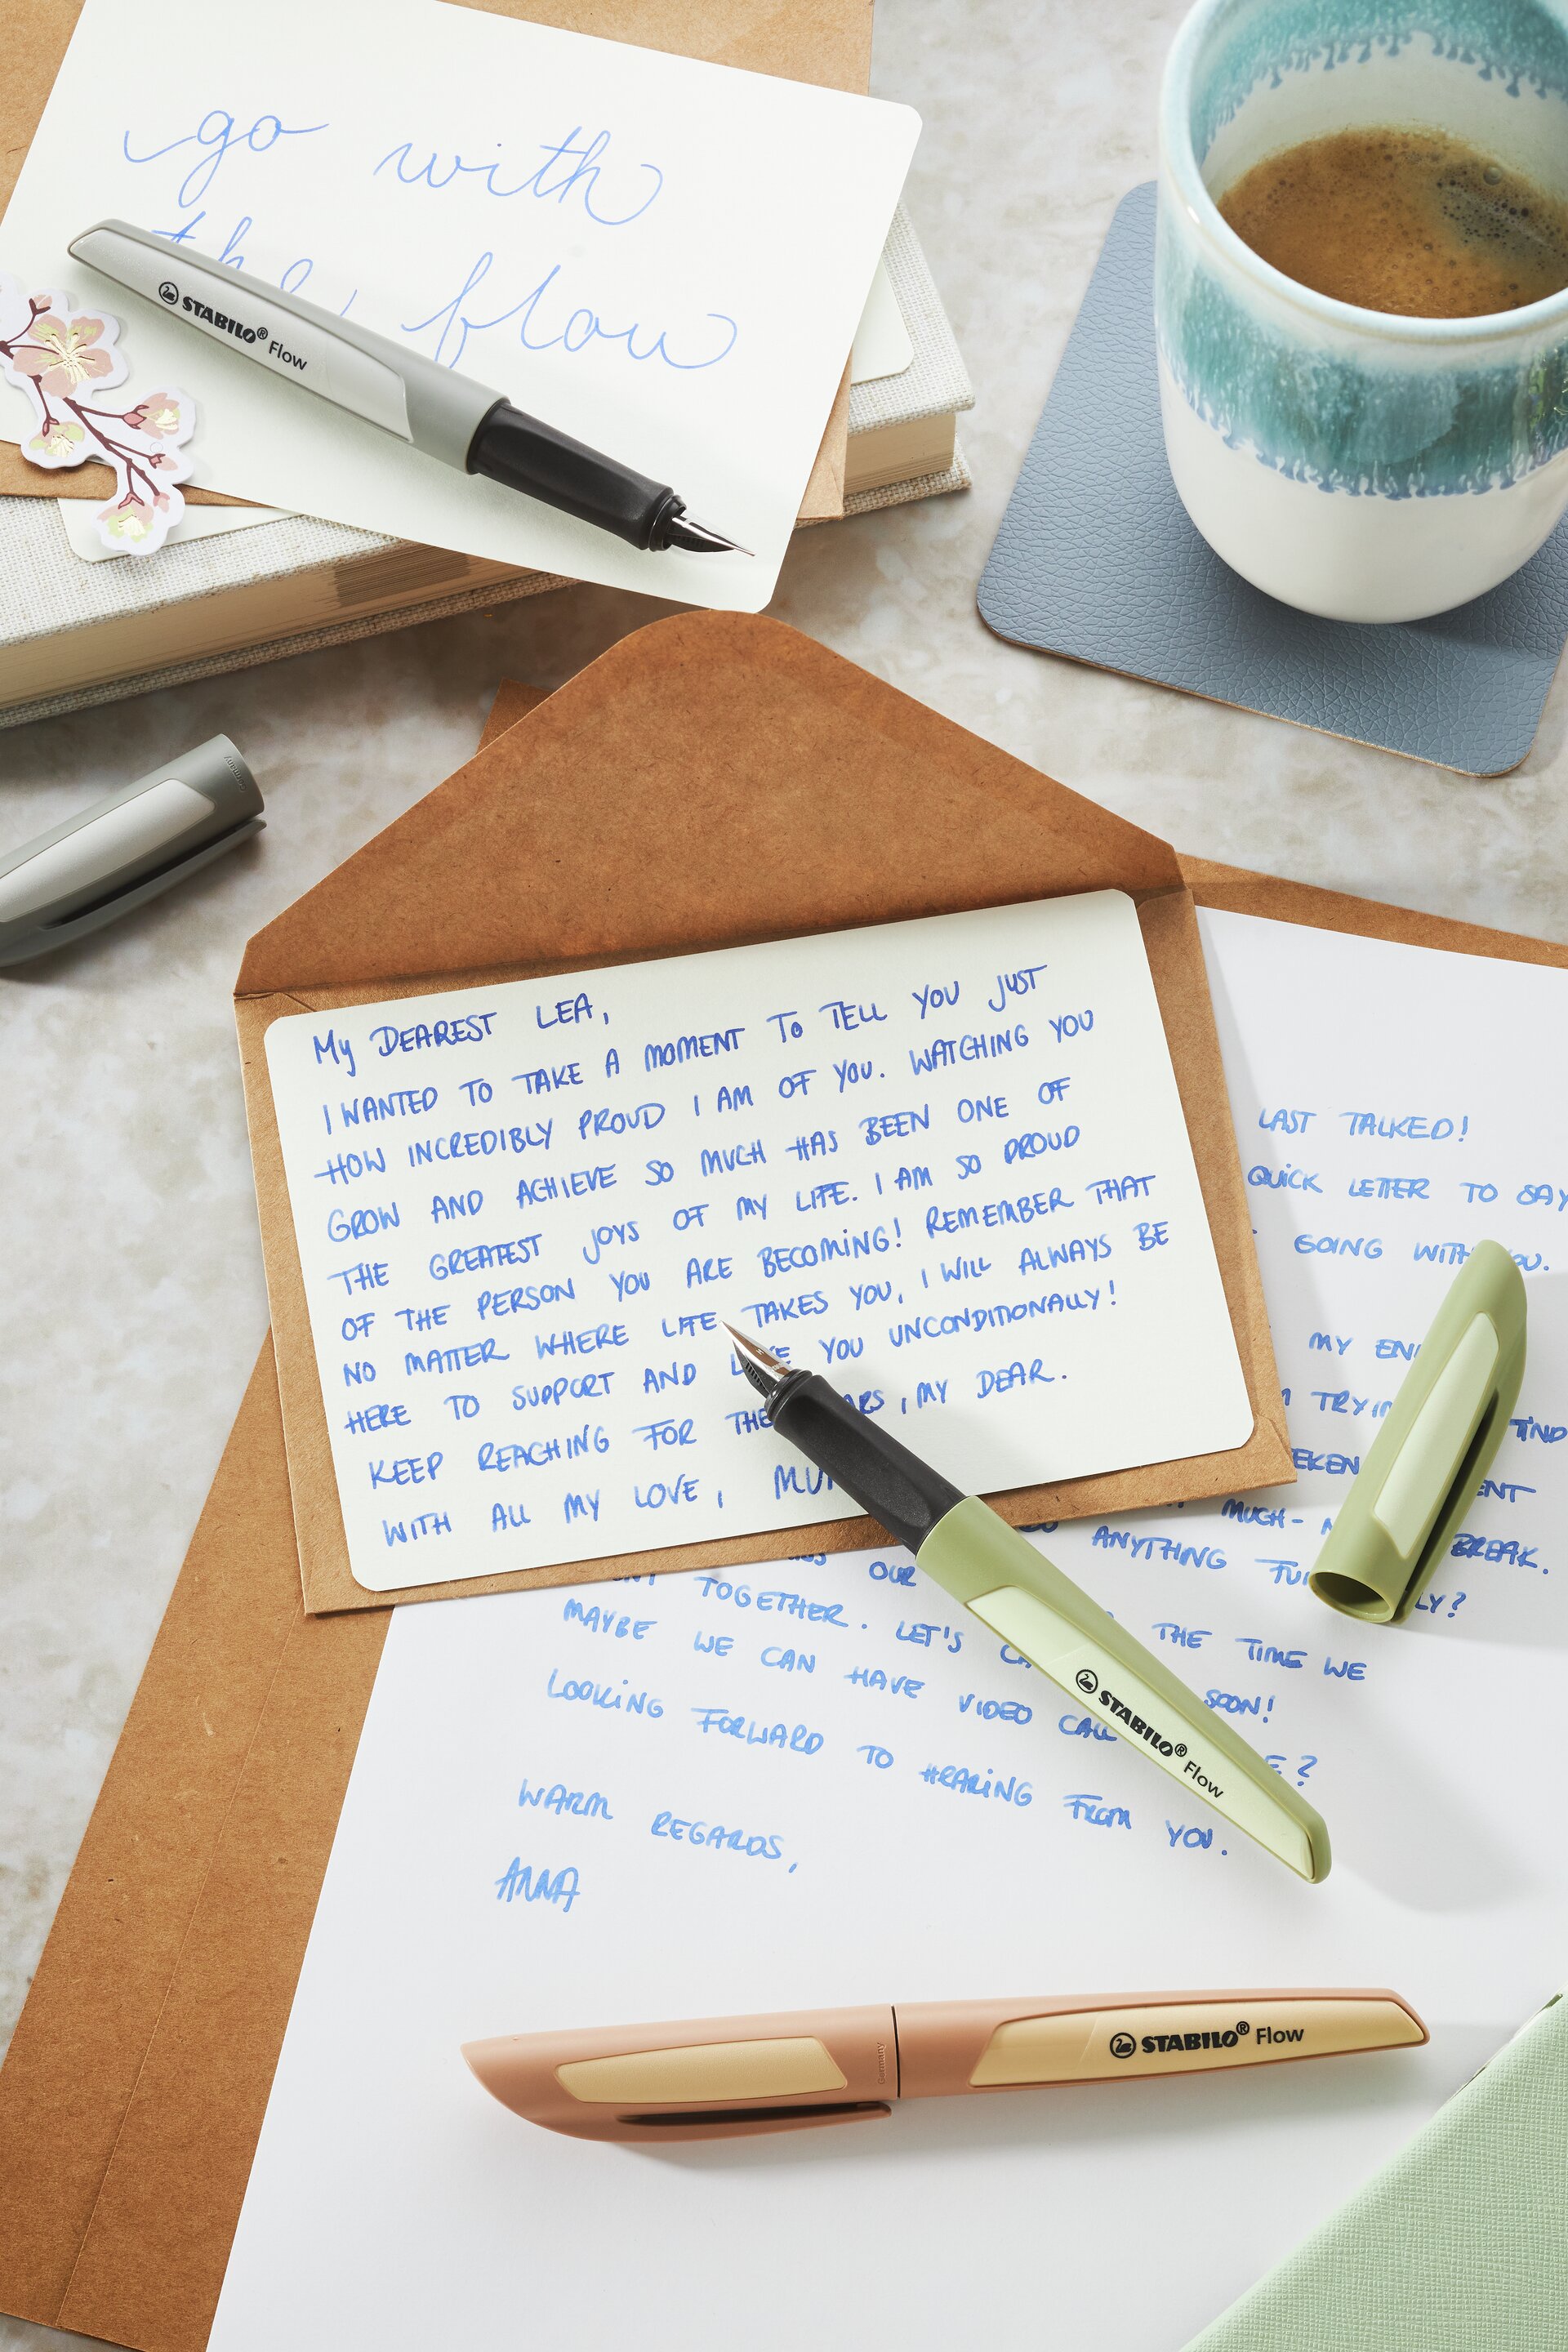 go with
the flow
STABILO® Flow
Germany
My DEAREST LEA,
I WANTED TO TAKE A MOMENT TO TELL YOU JUST
HOW INCREDIBLY PROUD I AM OF YOU. WATCHING YOU
GROW AND ACHIEVE SO MUCH HAS BEEN ONE OF
THE GREATEST JOYS OF MY LIFE. I AM SO PROUD
OF THE PERSON YOU ARE BECOMING! REMEMBER THAT
NO MATTER WHERE LIFE TAKES YOU, I WILL ALWAYS BE
HERE TO SUPPORT AND YOU UNCONDITIONALLY!
KEEP REACHING FOR THE , MY DEAR.
WITH ALL MY LOVE,
LAST TALKED!
QUICK LETTER TO SAY
GOING WITH
MY
MUCH-
BREAK.
ANYTHING
OUR
TOGETHER. LET'S THE TIME WE
MAYBE WE CAN HAVE VIDEO CALL SOON!
LOOKING FORWARD TO HEARING FROM YOU.
WARM REGARDS,
ANNA
STABILO® Flow
Germany
STABILO® Flow